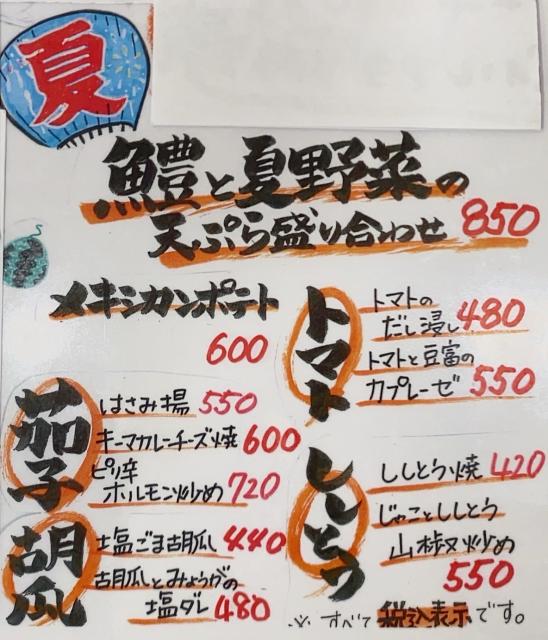 夏
鱧と夏野菜の
天ぷら盛り合わせ 850
メキシカンポテト
600
トマト
トマトの
だし浸し 480
トマトと豆富の
カプレーゼ 550
茄子
はさみ揚 550
キーマカレーチーズ焼 600
ピリ辛
ホルモン炒め 720
ししとう
ししとう焼 420
じゃことししとう
山椒炒め
550
胡瓜
塩ごま胡瓜 440
胡瓜とみょうがの
塩ダレ 480
※ すべて税込表示です。